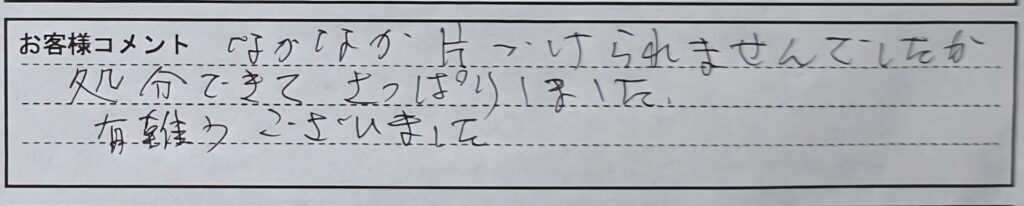 お客様コメント なかなか片づけられませんでしたが
処分できてさっぱりしました。
有難うございました